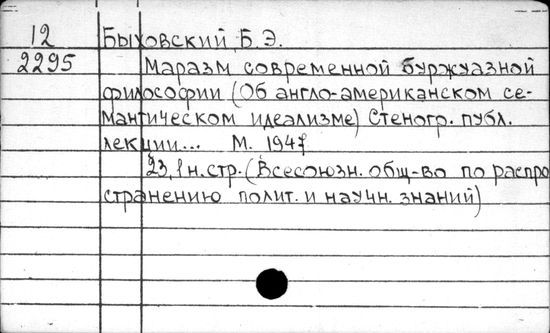 12 Быховский, Б.Э.
2295 Маразм современной буржуазной
философии (Об англо-американском се-
мантическом идеализме) Стеногр. публ.
лекции... М. 1947
23, 1 н. стр. (Всесоюзн. общ-во по распро
странению полит. и научн. знаний)